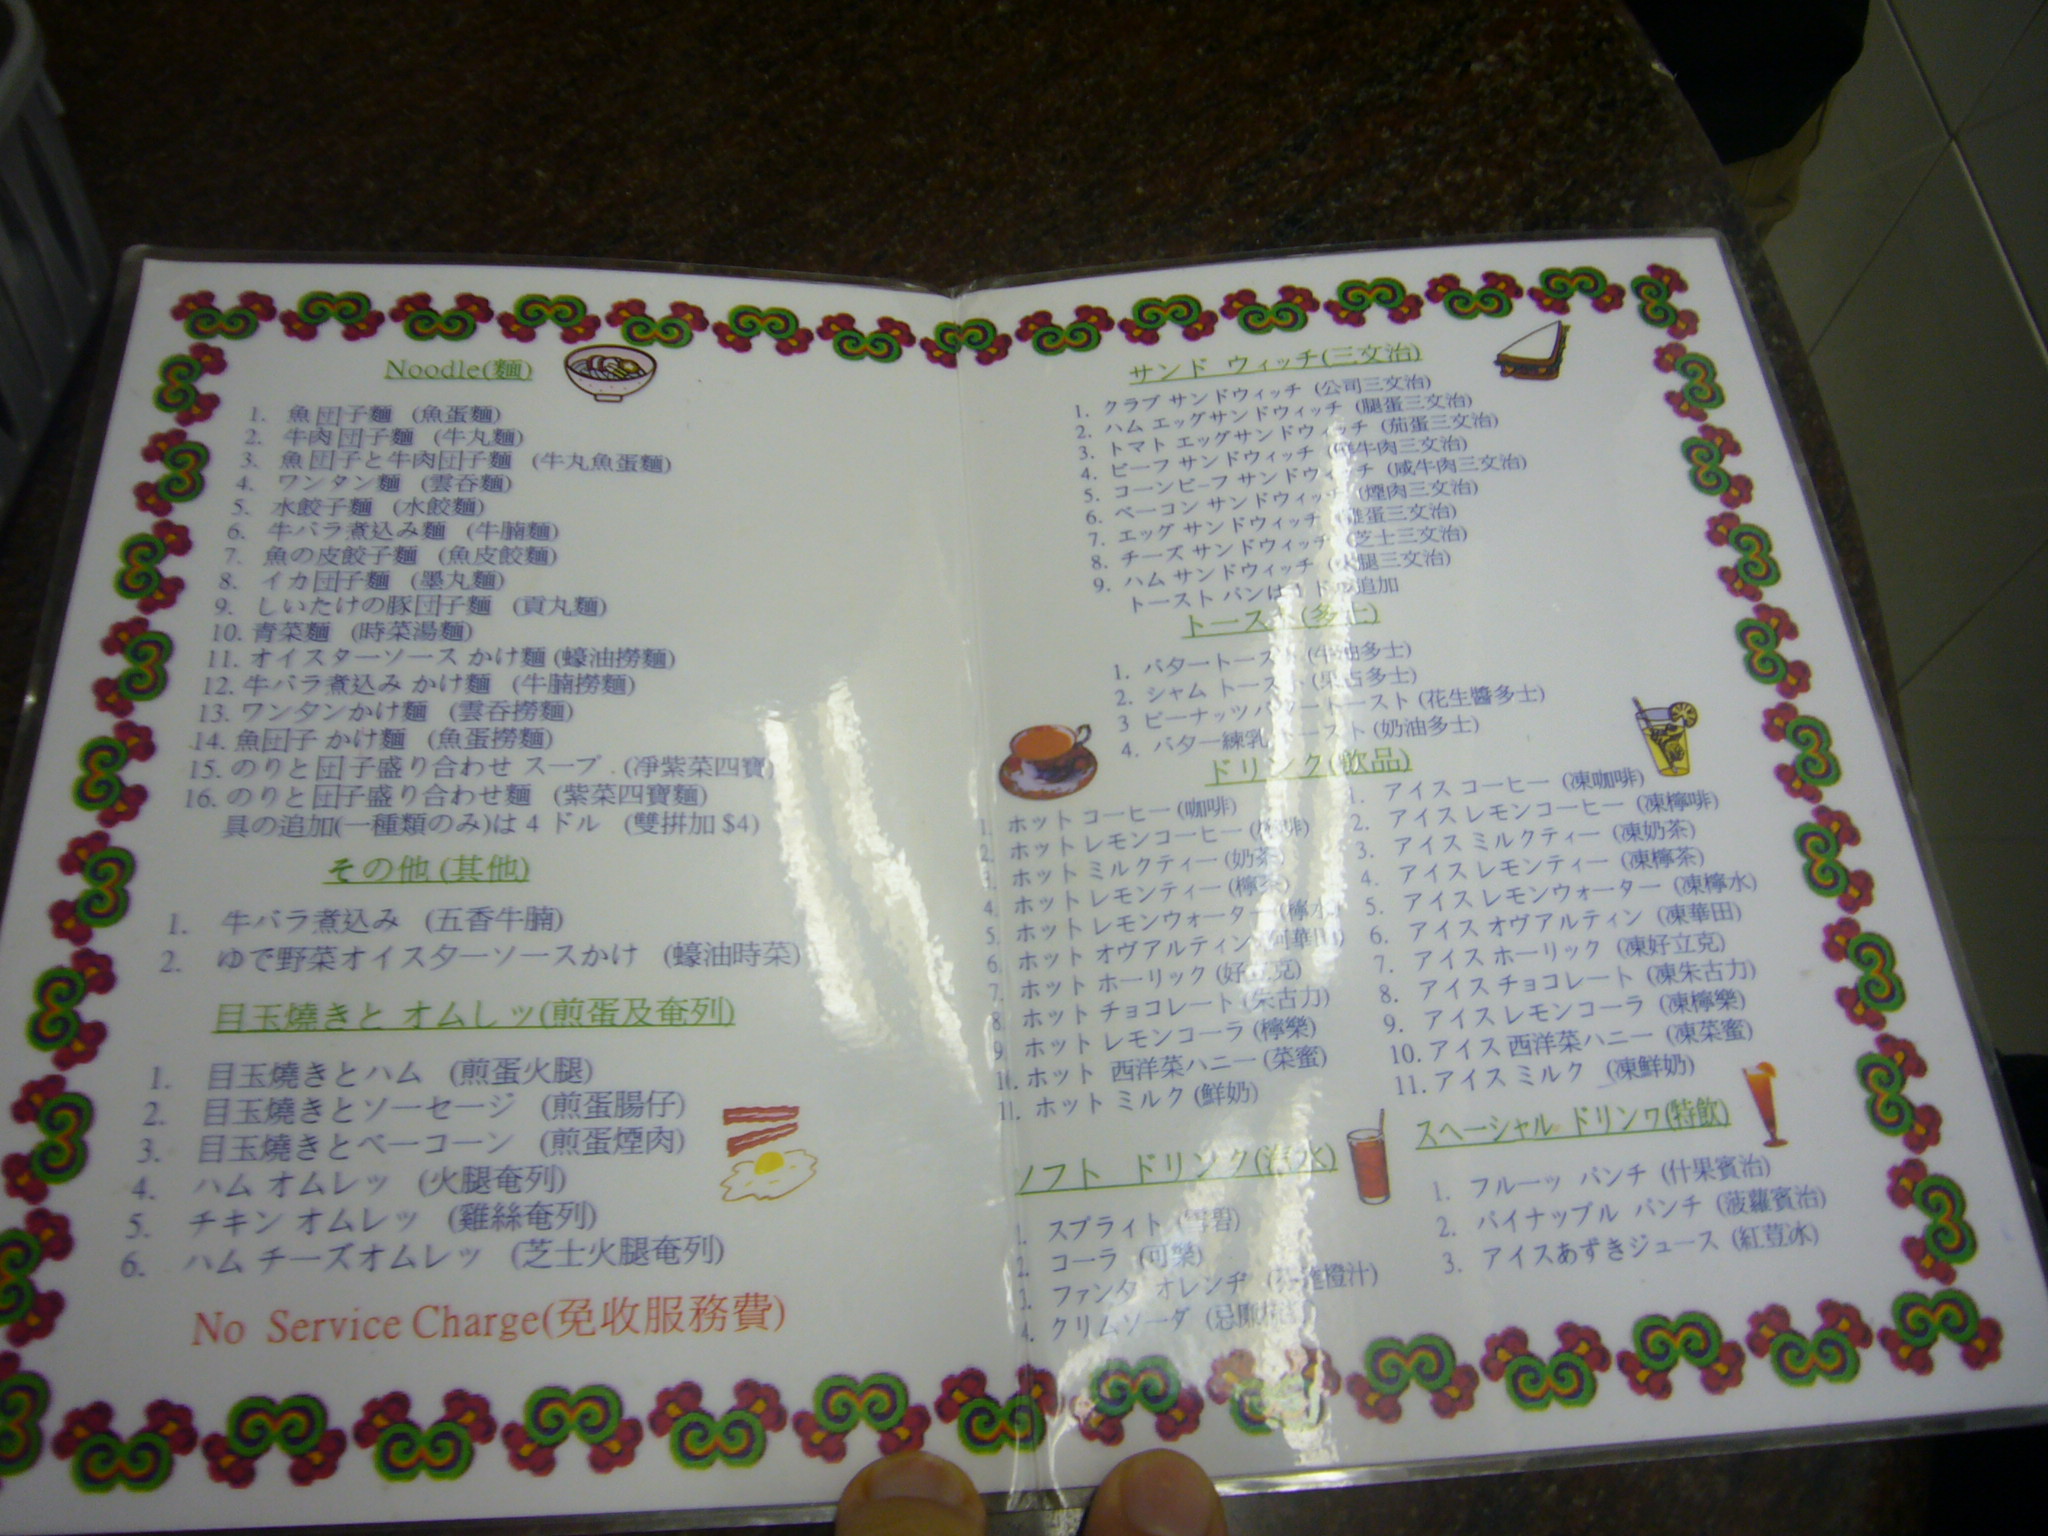 Noodle(麵)
1. 魚団子麵 (魚蛋麵)
2. 牛肉団子麵 (牛丸麵)
3. 魚団子と牛肉団子麵 (牛丸魚蛋麵)
4. ワンタン麵 (雲吞麵)
5. 水餃子麵 (水餃麵)
6. 牛バラ煮込み麵 (牛腩麵)
7. 魚の皮餃子麵 (魚皮餃麵)
8. イカ団子麵 (墨丸麵)
9. しいたけの豚団子麵 (貢丸麵)
10. 青菜麵 (時菜湯麵)
11. オイスターソース かけ麵 (蠔油撈麵)
12. 牛バラ煮込み かけ麵 (牛腩撈麵)
13. ワンタンかけ麵 (雲吞撈麵)
14. 魚団子 かけ麵 (魚蛋撈麵)
15. のりと団子盛り合わせ スープ (凈紫菜四寶)
16. のりと団子盛り合わせ麵 (紫菜四寶麵)
具の追加(一種類のみ)は 4 ドル (雙拼加 $4)
その他 (其他)
1. 牛バラ煮込み (五香牛腩)
2. ゆで野菜オイスターソースかけ (蠔油時菜)
目玉燒きと オムしッ(煎蛋及奄列)
1. 目玉燒きとハム (煎蛋火腿)
2. 目玉燒きとソーセージ (煎蛋腸仔)
3. 目玉燒きとベーコーン (煎蛋煙肉)
4. ハム オムレッ (火腿奄列)
5. チキン オムレッ (雞絲奄列)
6. ハム チーズオムレッ (芝士火腿奄列)
No Service Charge(免收服務費)
サンド ウィッチ(三文治)
1. クラブ サンドウィッチ (公司三文治)
2. ハム エッグサンドウィッチ (腿蛋三文治)
3. トマト エッグサンドウィッチ (茄蛋三文治)
4. ビーフ サンドウィッチ 牛肉三文治)
5. コーンビーフ サンドウィッチ (咸牛肉三文治)
6. ベーコン サンドウィッチ (煙肉三文治)
7. エッグ サンドウィッチ 蛋三文治)
8. チーズ サンドウィッチ (芝士三文治)
9. ハム サンドウィッチ (火腿三文治)
トースト パンは 追加
トースト (多士)
1. バタートースト (牛油多士)
2. シャム トースト (果占多士)
3 ピーナッツバタートースト (花生醬多士)
4. バター練乳 トースト (奶油多士)
ドリンク(飲品)
1. ホット コーヒー (咖啡)
2. ホット レモンコーヒー
3. ホット ミルクティー (奶茶)
4. ホット レモンティー (檸茶)
5. ホット レモンウォーター (檸水)
6. ホット オヴァルティン 阿華田)
7. ホット ホーリック (好立克)
8. ホット チョコレート (朱古力)
9. ホット レモンコーラ (檸樂)
10. ホット 西洋菜ハニー (菜蜜)
11. ホット ミルク (鮮奶)
1. アイス コーヒー (凍咖啡)
2. アイス レモンコーヒー (凍檸啡)
3. アイス ミルクティー (凍奶茶)
4. アイス レモンティー (凍檸茶)
5. アイス レモンウォーター (凍檸水)
6. アイス オヴアルティン (凍華田)
7. アイス ホーリック (凍好立克)
8. アイス チョコレート (凍朱古力)
9. アイス レモンコーラ (凍檸樂)
10. アイス 西洋菜ハニー (凍菜蜜)
11. アイス ミルク (凍鮮奶)
ソフト ドリンク(汽水)
1. スプライト
2. コーラ (可樂)
3. ファンタ オレンヂ 橙汁)
4. クリムソーダ
スペーシャル ドリンク(特飲)
1. フルーッ パンチ (什果賓治)
2. パイナップル パンチ (菠蘿賓治)
3. アイスあずきジュース (紅荳冰)